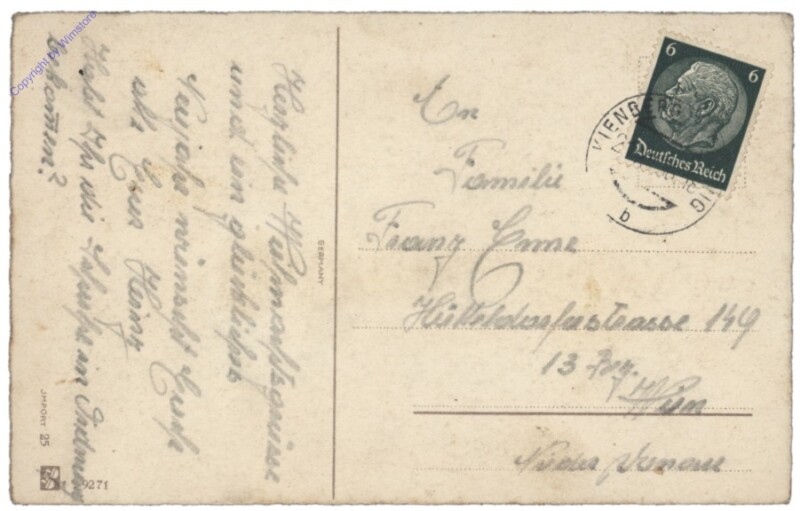 Copyright by Wimstore
Herzliche Weihnachtsgrüsse
und ein glückliches
Neujahr wünscht Euch
alle Euer Heinz
Habt Ihr die Schuhe in
bekommen?
GERMANY
IMPORT 25
9271
An
Familie
Franz
Hütteldorferstrasse 149
13 Bez.
Wien
Nieder Donau
6 6
Deutsches Reich
WIENERB
b